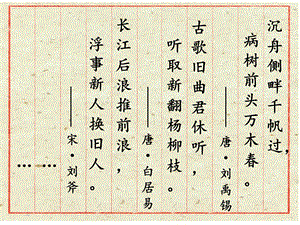 沉舟侧畔千帆过，
病树前头万木春。
——唐·刘禹锡
古歌旧曲君休听，
听取新翻杨柳枝。
——唐·白居易
长江后浪推前浪，
浮事新人换旧人。
——宋·刘斧
……